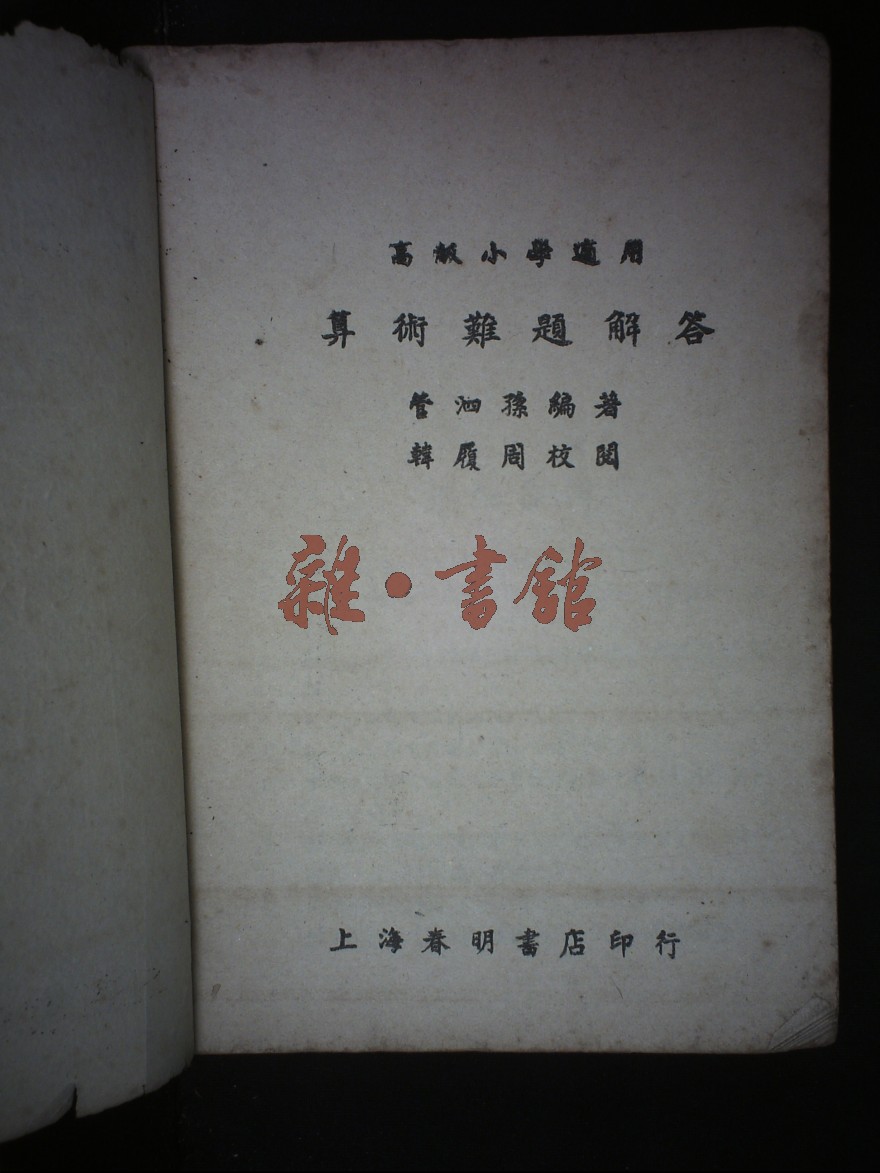 高級小學適用
算術難題解答
管泗孫編著
韓履周校閱
雜·書館
上海春明書店印行